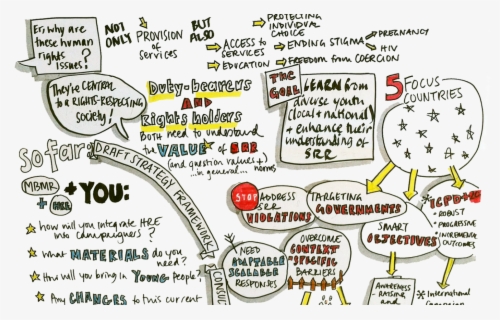 Er, why are
these human
rights
issues?
NOT
ONLY
PROVISION
of
services
BUT
ALSO
ACCESS to
SERVICES
EDUCATION
PROTECTING
INDIVIDUAL
CHOICE
ENDING STIGMA
PREGNANCY
HIV
FREEDOM from COERCION
They're CENTRAL
to a RIGHTS-RESPECTING
society!
Duty-bearers
AND
Rights holders
BOTH need to understand
the VALUE of SRR
(and question values +)
...in general... norms
THE
GOAL
LEARN from
diverse youth
(local & national)
& enhance their
understanding of
SRR
5 FOCUS
COUNTRIES
so far
DRAFT STRATEGY FRAMEWORK
CONSUL
MBMR
+
+ YOU:
how will you integrate HRE
into campaigners?
What MATERIALS do you
need?
How will you bring in YOUNG People?
Any CHANGES to this current
STOP ADDRESS
SRR
VIOLATIONS
TARGETING
GOVERNMENTS
ICPD+
ROBUST
PROGRESSIVE
INCREMENTAL
OUTCOMES
SMART
OBJECTIVES
NEED
ADAPTABLE
SCALEABLE
RESPONSES
OVERCOME
CONTEXT
SPECIFIC
BARRIERS
AWARENESS
-RAISING
and
International